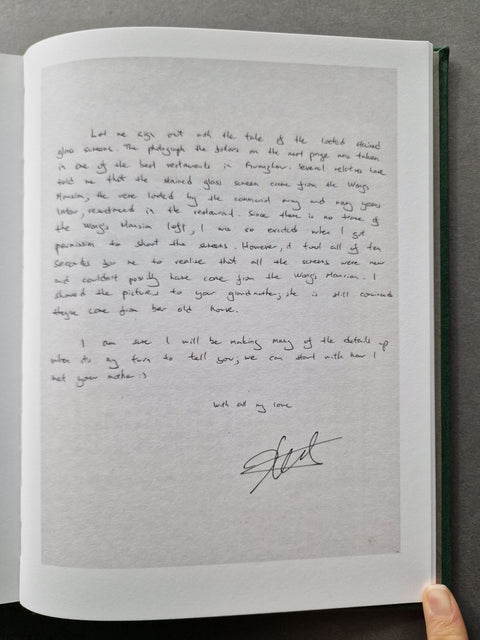 Let me sign out with the tale of the looted stained
glass screens. The photograph the follows on the next page was taken
in one of the best restaurants in Guangzhou. Several relatives have
told me that the stained glass screen came from the Wong's
Mansion, the were looted by the communist army and many years
later, resurfaced in the restaurant. Since there is no trace of
the Wong's Mansion left, I was so excited when I got
permission to shoot the screens. However, it took all of ten
seconds for me to realise that all the screens were new
and couldn't possibly have come from the Wong's Mansion. I
showed the pictures to your grandmother, she is still convinced
they're come from her old house.
I am sure I will be making many of the details up
when its my turn to tell you; we can start with how I
met your mother :)
With all my love